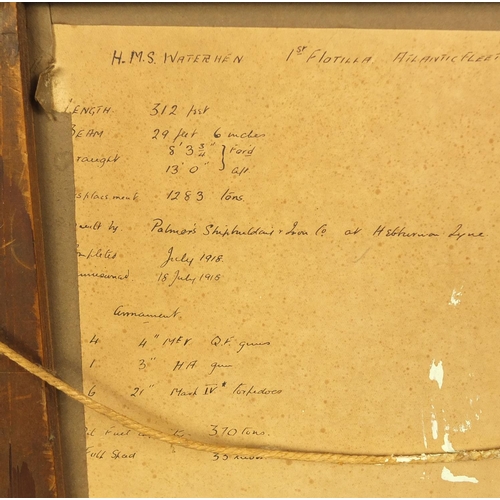 H.M.S. WATERHEN 1ST FLOTILLA ATLANTIC FLEET
LENGTH 312 feet
BEAM 29 feet 6 inches
raught 8' 3 3/4" } Ford
13' 0" } aft
isplacement 1283 tons.
uilt by Palmers Shipbuilding & Iron Co at Hebburn on Tyne
mpleted July 1918.
mmissioned 18 July 1918
Armament.
4 4" MkV Q.F. guns
1 3" HA gun
6 21" Mark IV* Torpedoes
Fuel 370 tons.
Full